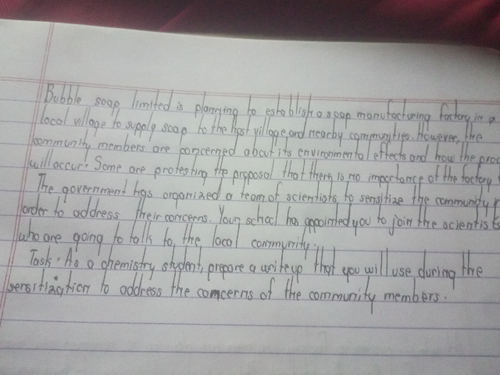 Bubble soap limited is planning to establish a soap manufacturing factory in a
local village to supply soap to the host village and nearby communities. However, the
community members are concerned about its environmental effects and how the
will occur. Some are protesting the proposal that there is no importance of the factory
The government has organized a team of scientists to sensitize the community
order to address their concerns. Your school has appointed you to join the scientists
who are going to talk to, the local community.
Task: As a chemistry student, prepare a writeup that you will use during the
sensitization to address the concerns of the community members.